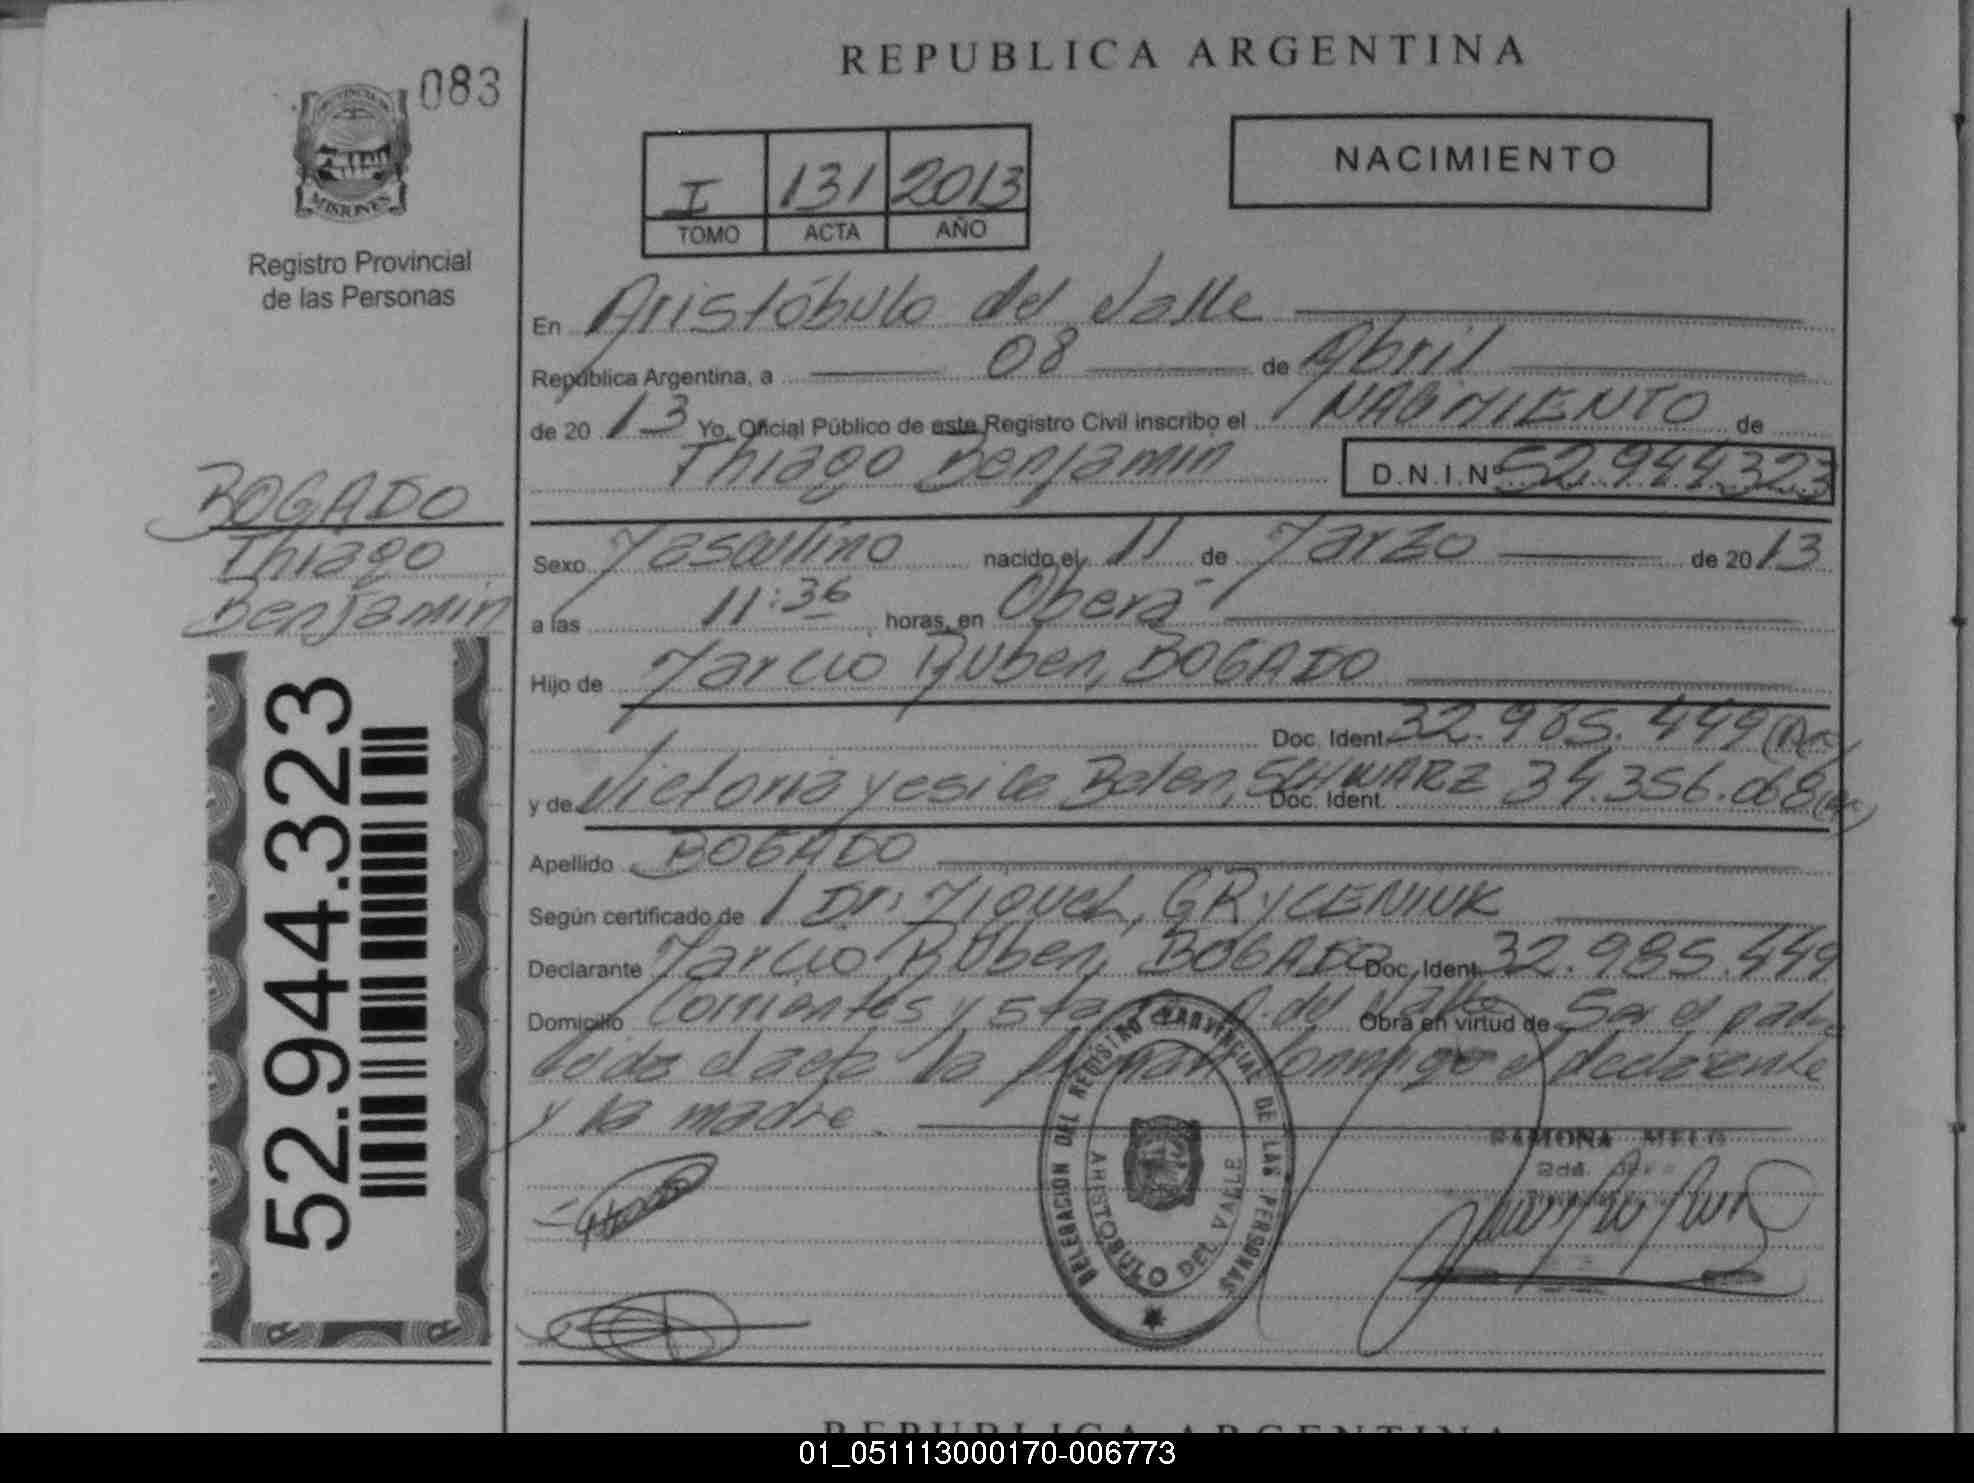 083
PROVINCIA DE
MISIONES
Registro Provincial
de las Personas
REPUBLICA ARGENTINA
I 131 2013
TOMO ACTA AÑO
NACIMIENTO
En Aristóbulo del Valle
República Argentina, a 08 de Abril
de 20 13 Yo, Oficial Público de este Registro Civil inscribo el NACIMIENTO de
Thiago Benjamin D.N.I.Nº 52.944323
BOGADO
Thiago
Benjamin
Sexo Masculino nacido el 11 de Marzo de 20 13
a las 11:36 horas, en Oberá
Hijo de Marcio Ruben, BOGADO
Doc. Ident. 32.985.449
y de Victoria Yesica Belen, SCHWARZ Doc. Ident. 34.356.068
Apellido BOGADO
Según certificado de Dr. Miguel, GRYCENIUK
Declarante Marcio Ruben, BOGADO Doc. Ident. 32.985.449
Domicilio Corrientes y Sta A. del Valle Obra en virtud de Ser el padre
leida el acta la firman conmigo el declarante
y la madre.
52.944.323
DELEGACION DEL REGISTRO PROVINCIAL DE LAS PERSONAS
ARISTOBULO DEL VALLE
RAMONA MELO
2da.
REPUBLICA ARGENTINA
01_051113000170-006773